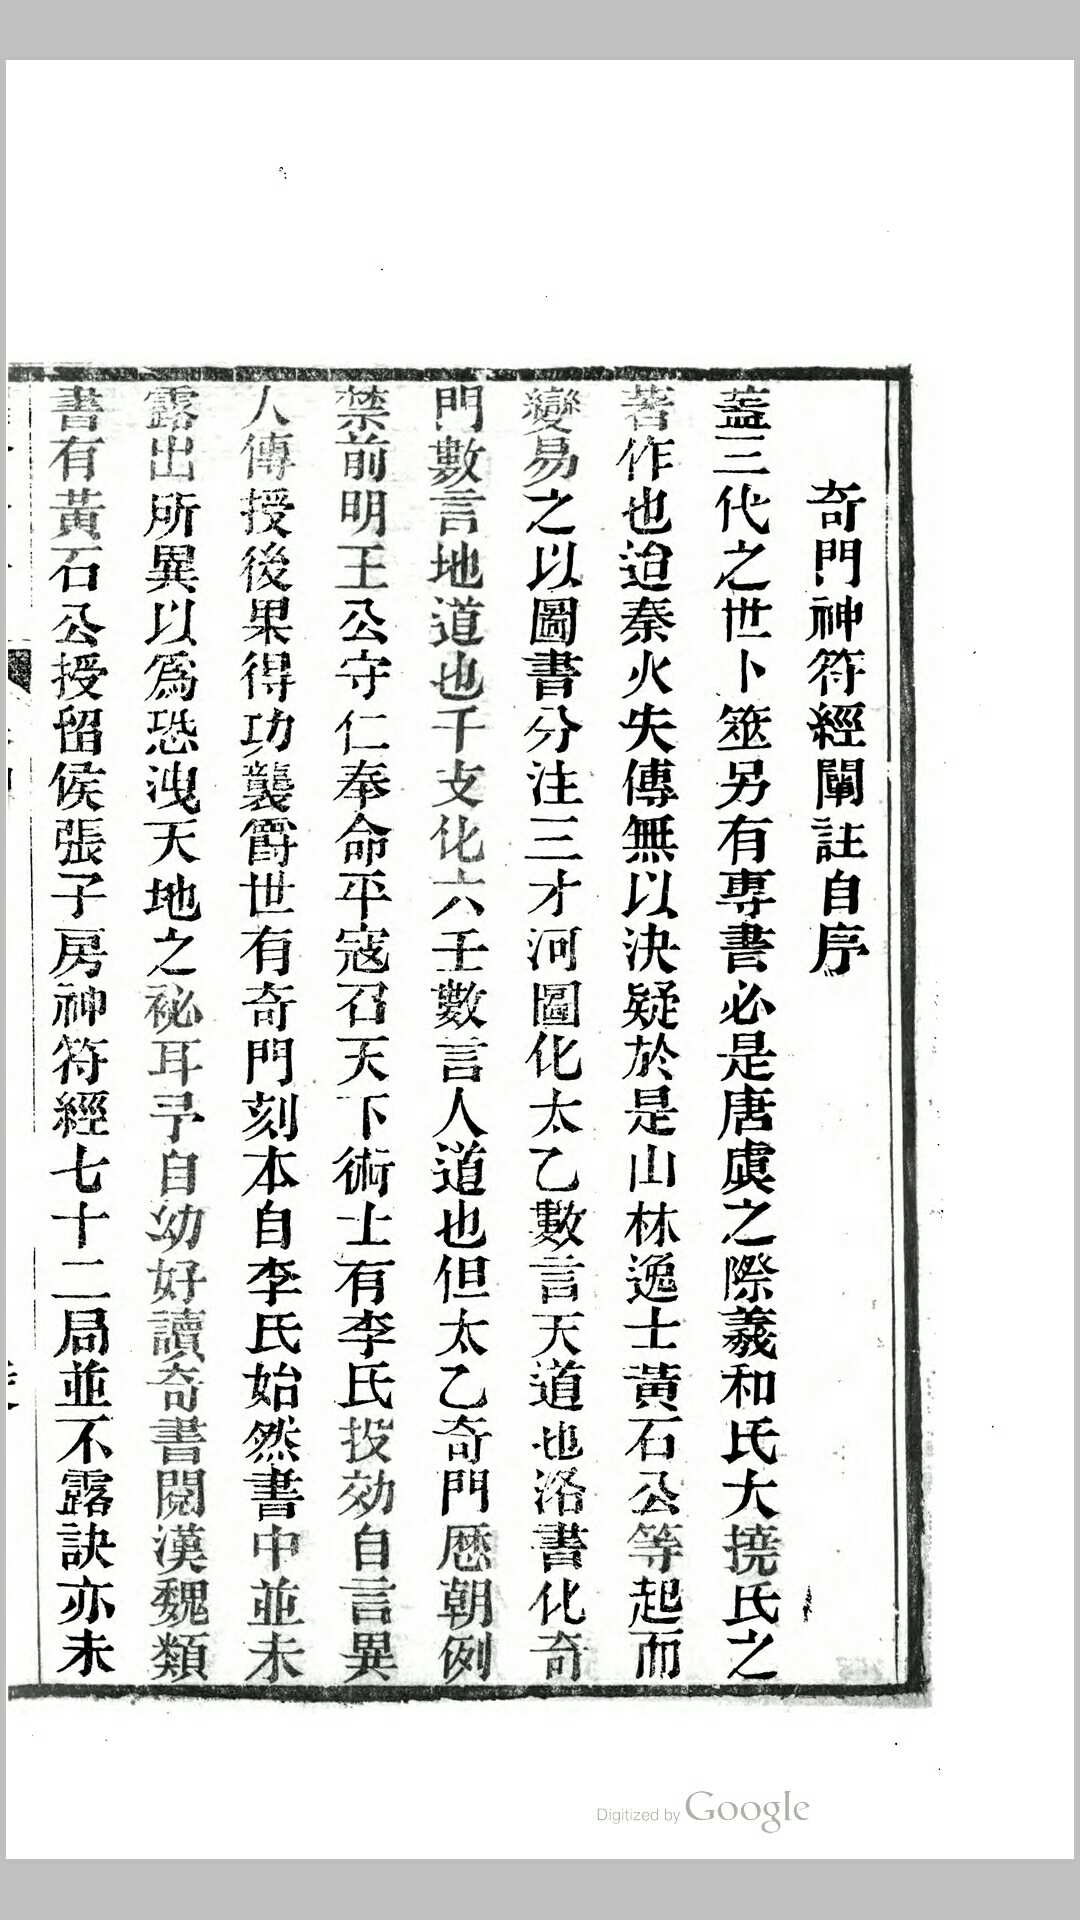 奇門神符經闡註自序
葢三代之世卜筮另有專書必是唐虞之際羲和氏大撓氏之
著作也迨秦火失傳無以決疑於是山林逸士黃石公等起而
變易之以圖書分注三才河圖化太乙數言天道也洛書化奇
門數言地道也干支化六壬數言人道也但太乙奇門歷朝例
禁前明王公守仁奉命平寇召天下術士有李氏投効自言異
人傳授後果得功襲爵世有奇門刻本自李氏始然書中並未
露出所異以爲恐洩天地之祕耳予自幼好讀奇書閱漢魏類
書有黃石公授留侯張子房神符經七十二局並不露訣亦未
Digitized by Google